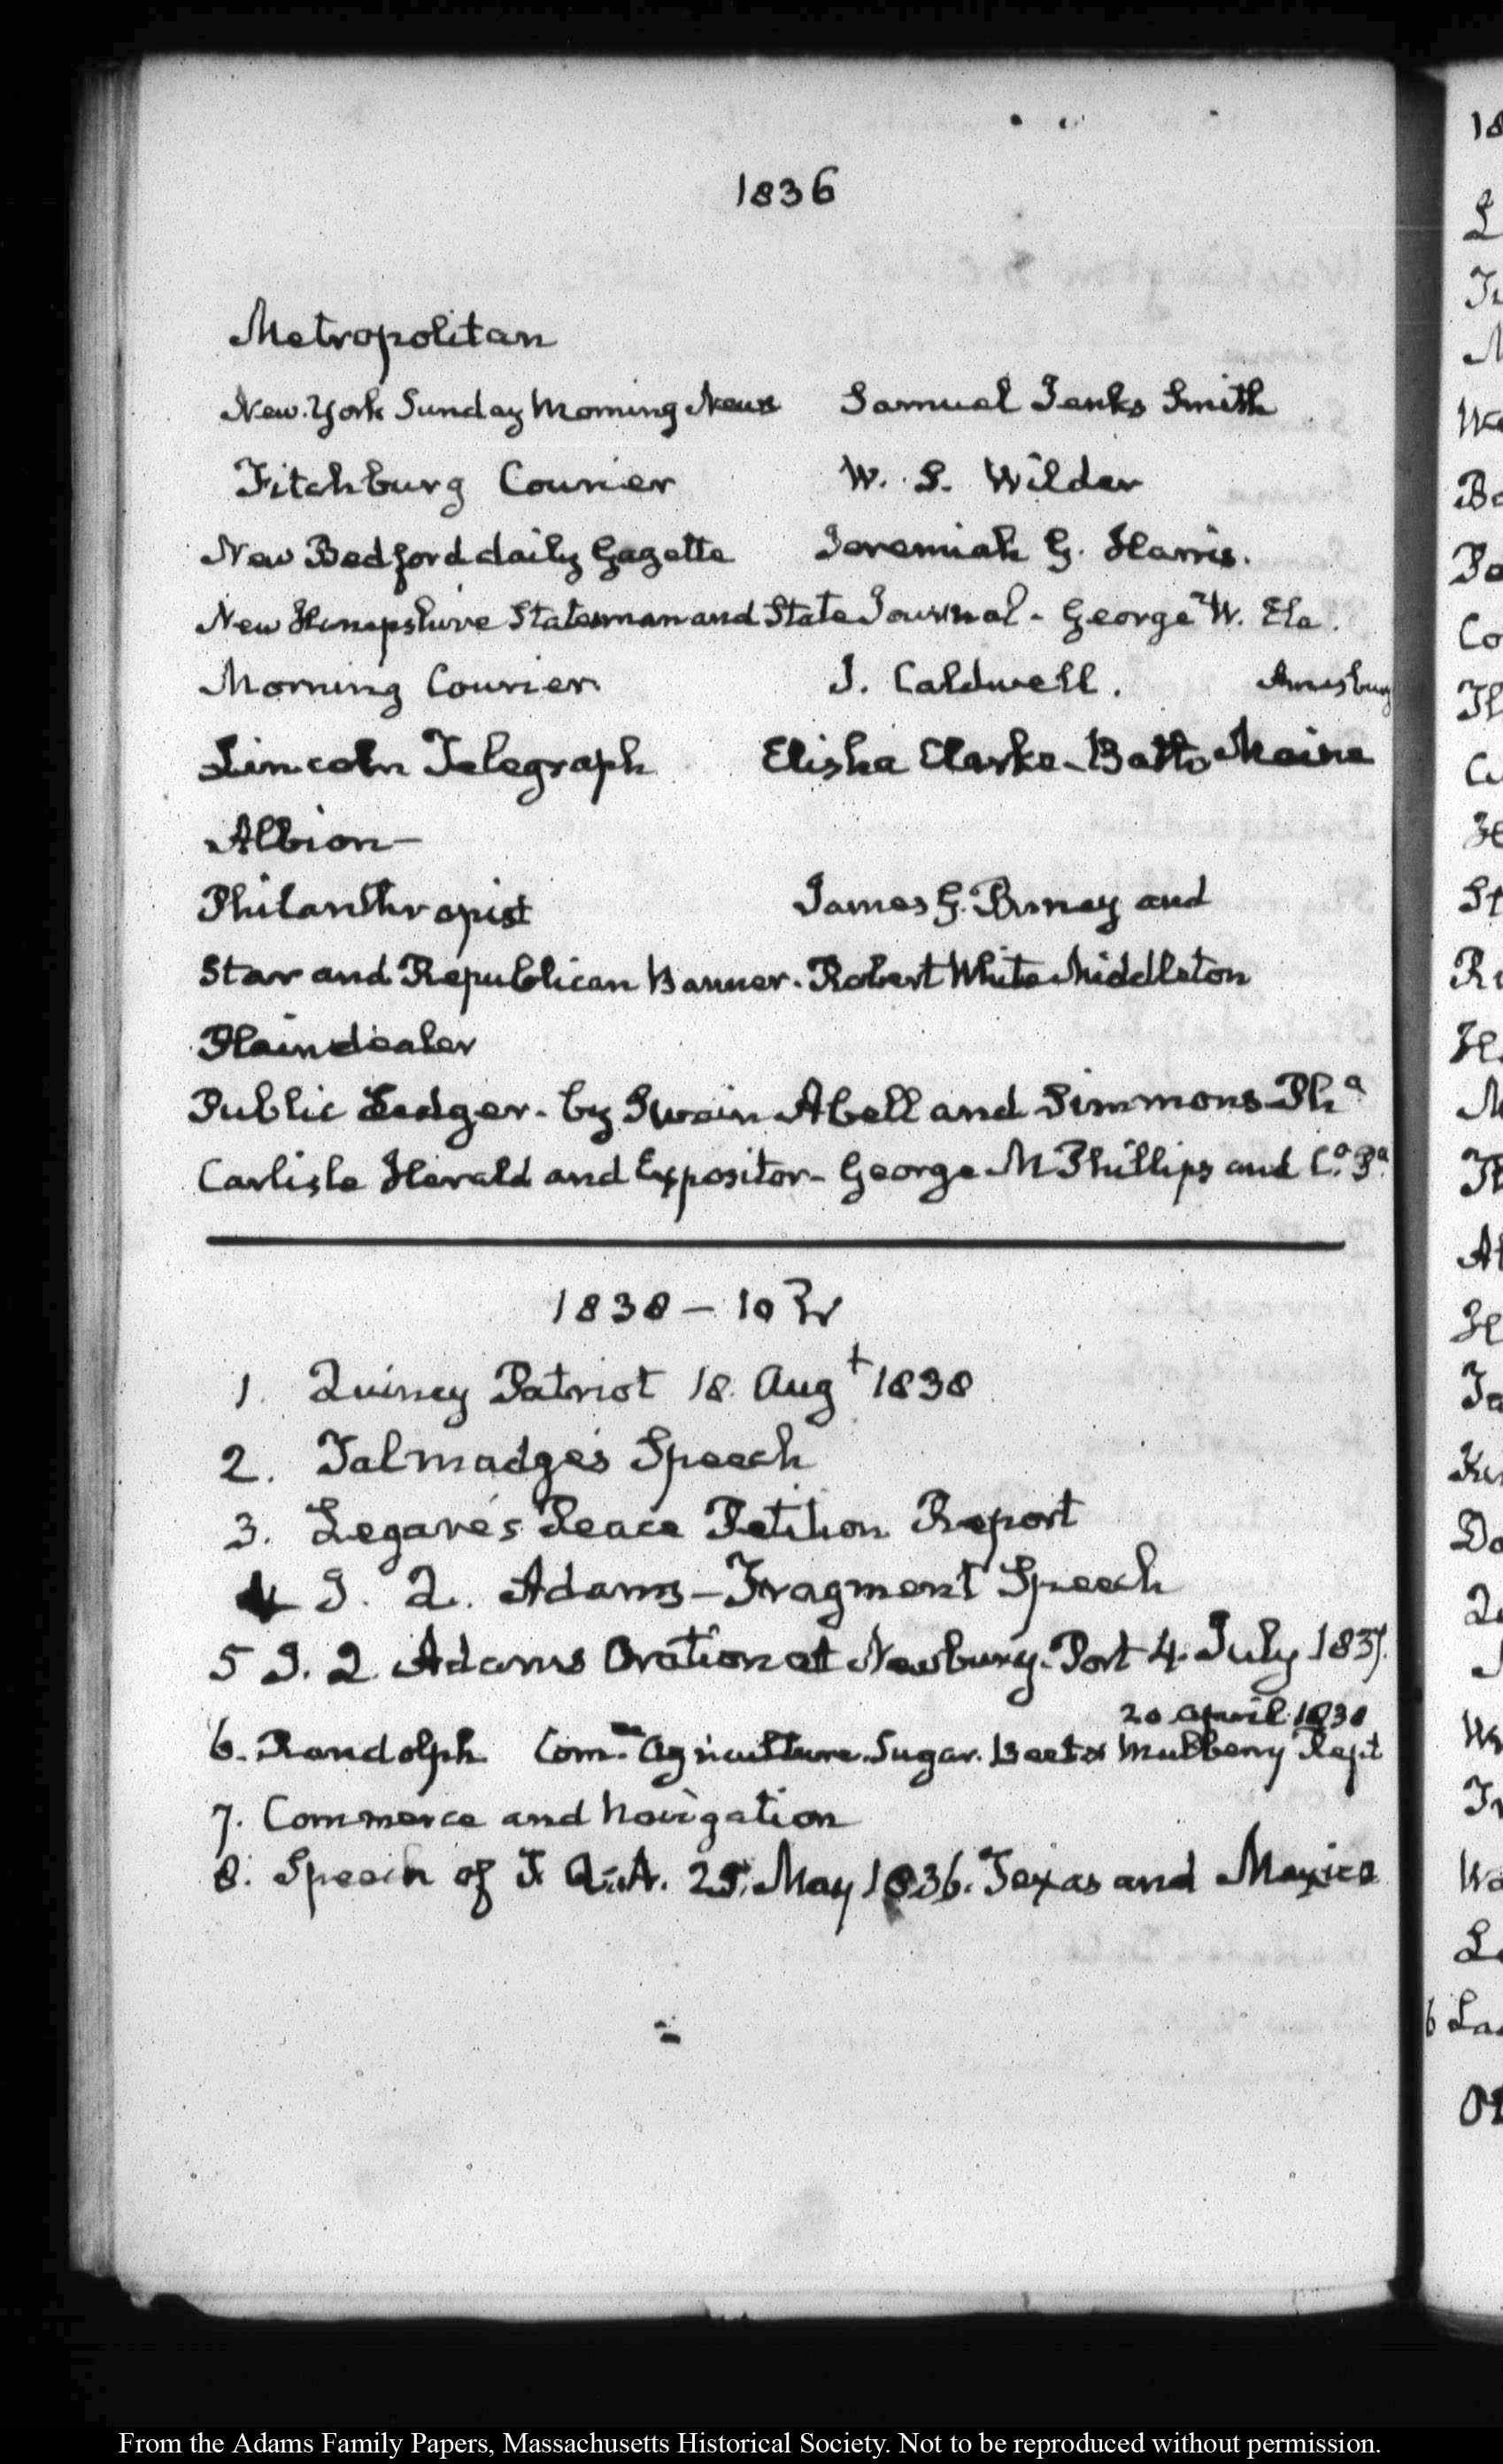 1836
Metropolitan
New. York Sunday Morning News Samuel Jenks Smith
Fitchburg Courier W. S. Wilder
New Bedford daily Gazette Jeremiah G. Harris.
New Hampshire Statesman and State Journal - George W. Ela.
Morning Courier J. Caldwell. Amesbury
Lincoln Telegraph Elisha Clarke - Bath Maine
Albion -
Philanthropist James G. Birney and
Star and Republican Banner. Robert White Middleton
Plaindealer
Public Ledger - by Swain Abell and Simmons Pha
Carlisle Herald and Expositor - George M Phillips and Co. Pa.
1838 - 10
1. Quincy Patriot 18. Augt 1838
2. Talmadge's Speech
3. Legare's Peace Petition Report
4 J. Q. Adams - Fragment Speech
5 J. Q. Adams Oration at Newbury-Port 4. July 1837.
20 April 1838
6. Randolph Comee Agriculture. Sugar. Beet & Mulberry Rept
7. Commerce and Navigation
8. Speech of J. Q. A. 25. May 1836. Texas and Mexico
From the Adams Family Papers, Massachusetts Historical Society. Not to be reproduced without permission.